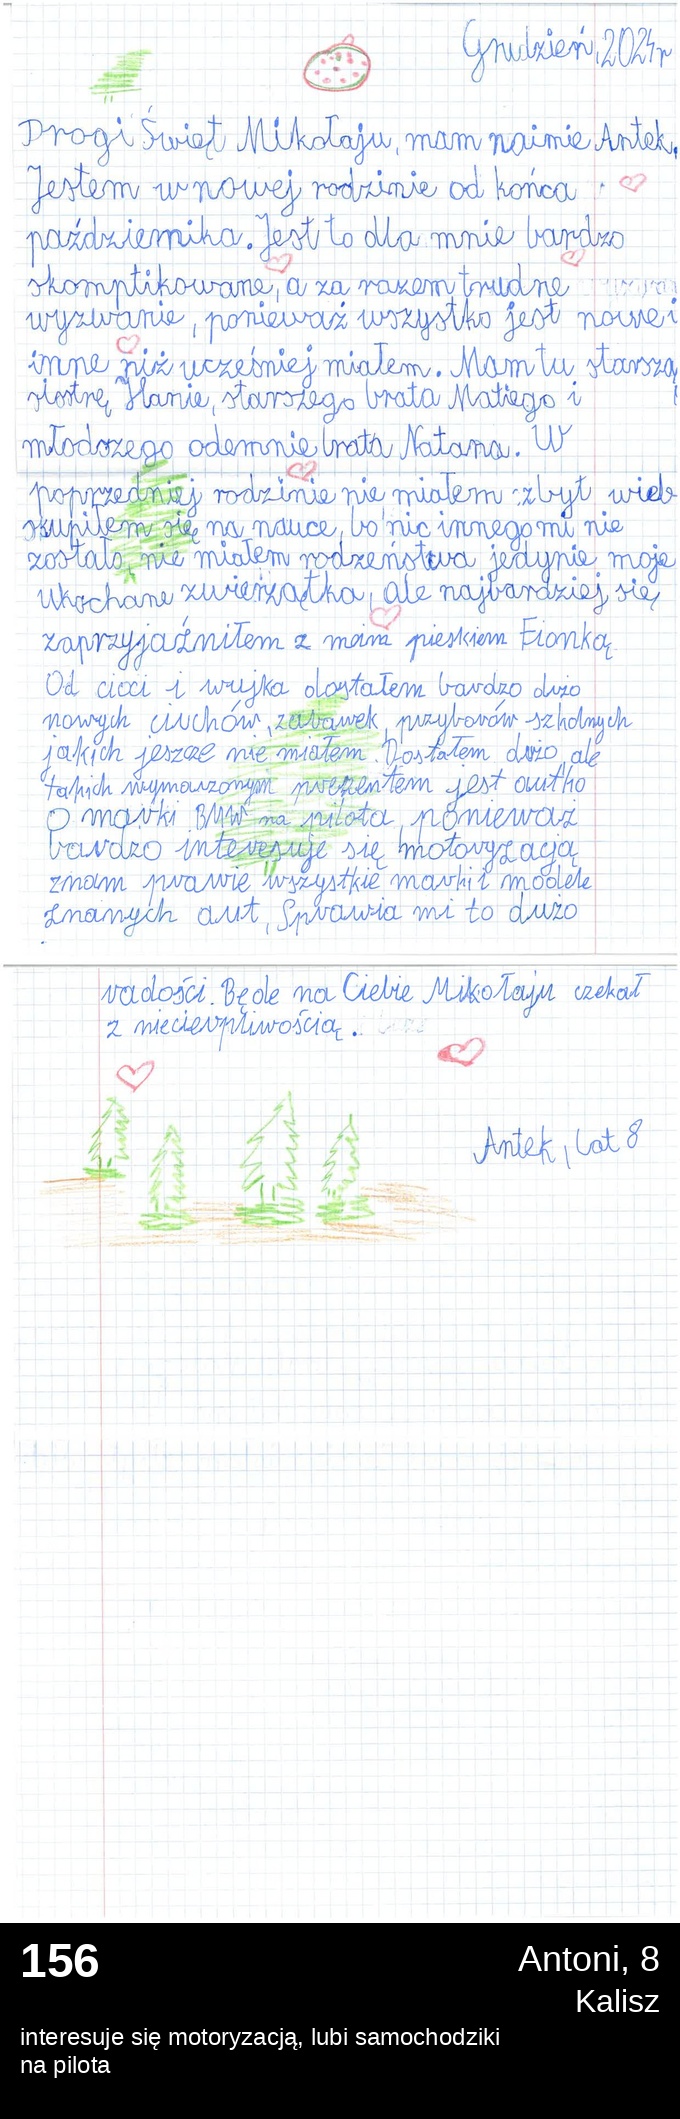 Grudzień, 2024r
Drogi Święt Mikołaju, mam naimie Antek.
Jestem w nowej rodzinie od końca
października. Jest to dla mnie bardzo
skomplikowane, a za razem trudne
wyzwanie, ponieważ wszystko jest nowe i
inne niż ucześniej miałem. Mam tu starszą
siostrę Hanie, starszego brata Matiego i
młodszego odemnie brata Natana. W
poprzedniej rodzinie nie miałem zbyt wiele
skupiłem się na nauce, bo nic innego mi nie
zostało, nie miałem rodzeństwa jedynie moje
ukochane zwierzątka, ale najbardziej się
zaprzyjaźniłem z moim pieskiem Fionką
Od cioci i wujka dostałem bardzo dużo
nowych ciuchów, zabawek, przyborów szkolnych
jakich jeszcze nie miałem. Dostałem dużo, ale
takich wymarzonym prezentem jest autko
o marki BMW na pilota, ponieważ
bardzo interesuje się motoryzacją
znam prawie wszystkie marki i modele
znanych aut, Sprawia mi to dużo
radości. Będe na Ciebie Mikołaju czekał
z niecierpliwością.
Antek, lat 8
156
Antoni, 8
Kalisz
interesuje się motoryzacją, lubi samochodziki
na pilota